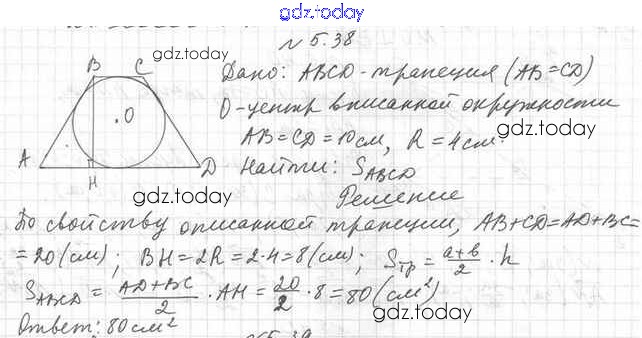 gdz.today
№ 5.38
gdz.today
B C
Дано: ABCD - трапеция (AB=CD)
O - центр вписанной окружности
.O
AB = CD = 10 см, R = 4 см.
gdz.today
A D
Найти: S_ABCD
H
gdz.today
Решение
По свойству описанной трапеции, AB+CD=AD+BC=
= 20 (см); BH = 2R = 2·4 = 8 (см); S_тр = (a+b)/2 · h
S_ABCD = (AD+BC)/2 · AH = 20/2 · 8 = 80 (см²)
gdz.today
Ответ: 80 см²
№ 5.39